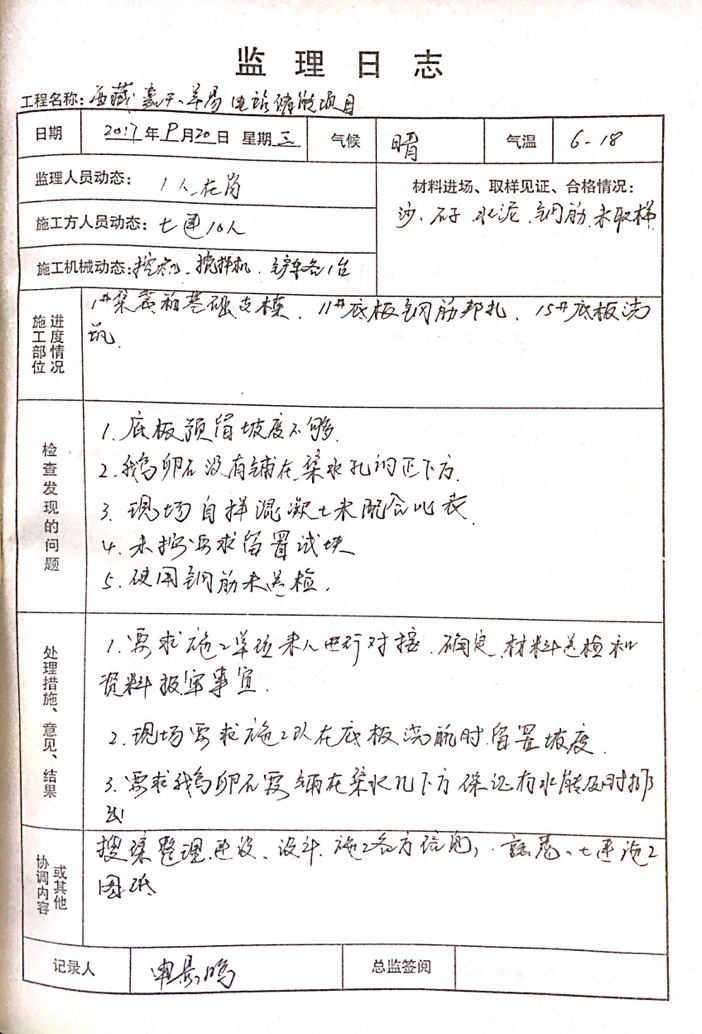 监理日志
工程名称：西藏 羊易电站储能项目
日期 2017年9月20日 星期三 气候 晴 气温 6-18
监理人员动态： 1人在岗
材料进场、取样见证、合格情况：
沙、石子 水泥、钢筋、未取样
施工方人员动态：七建10人
施工机械动态：挖机、搅拌机、铲车各1台
施工部位
进度情况
1#集装箱基础支模、11#底板钢筋邦扎、15#底板浇
筑
检查发现的问题
1. 底板预留坡度不够
2. 鹅卵石没有铺在集水孔的正下方
3. 现场自拌混凝土未配合比表
4. 未按要求留置试块
5. 使用钢筋未送检.
处理措施、意见、结果
1. 要求施工单位来人进行对接、确定材料送检和
资料报审事宜.
2. 现场要求施工队在底板浇筑时留置坡度
3. 要求鹅卵石要铺在集水孔下方 保证有水能及时排
出
协调内容
或其他
搜集整理建设、设计、施工各方信息, 七建施工
图纸
记录人
总监签阅